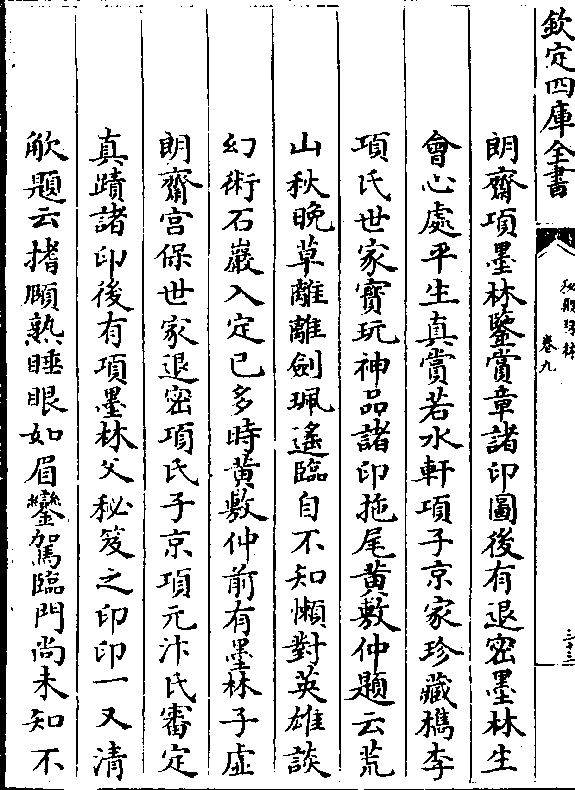 欽定四庫全書
秘殿珠林
卷九
三十三
朗齋項墨林鑒賞章諸印圖後有退密墨林生
會心處平生真賞若水軒項子京家珍藏檇李
項氏世家寳玩神品諸印拖尾黄敷仲題云荒
山秋晚草離離劍珮遙臨自不知懶對英雄談
幻術石巖入定已多時黄敷仲前有墨林子虚
朗齋宫保世家退密項氏子京項元汴氏審定
真蹟諸印後有項墨林父秘笈之印印一又清
觖題云搘頥熟睡眼如眉鑾駕臨門尚未知不